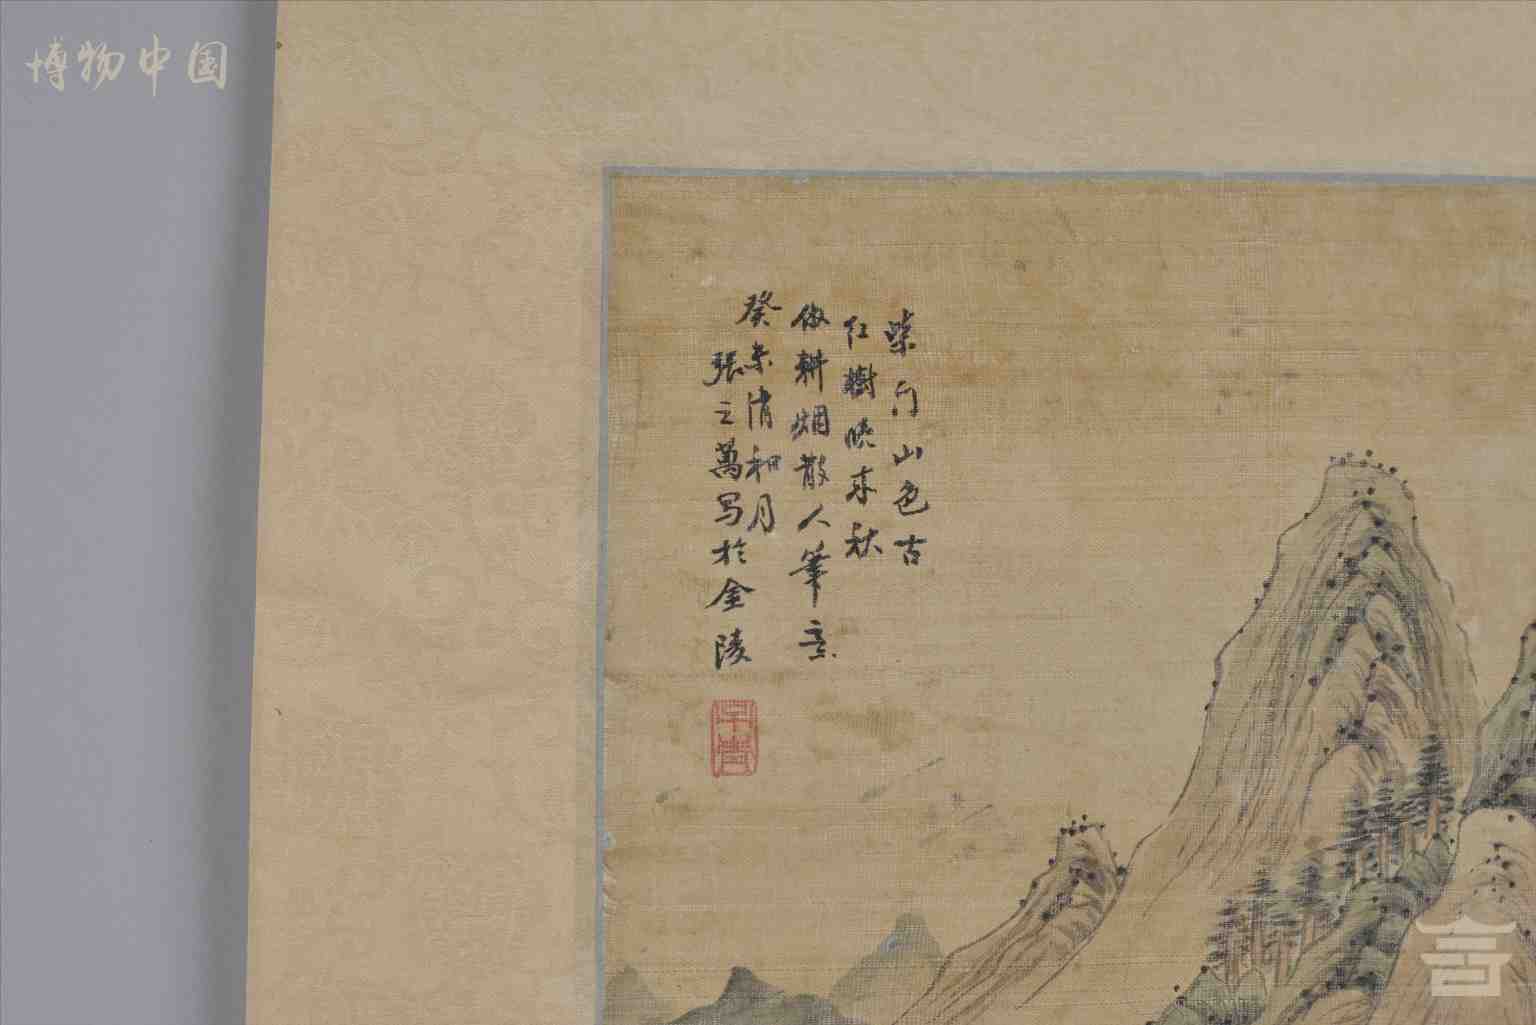 博物中国
柴门山色古
红樹晚来秋
倣耕烟散人筆意
癸未清和月
張之萬写於金陵
子青